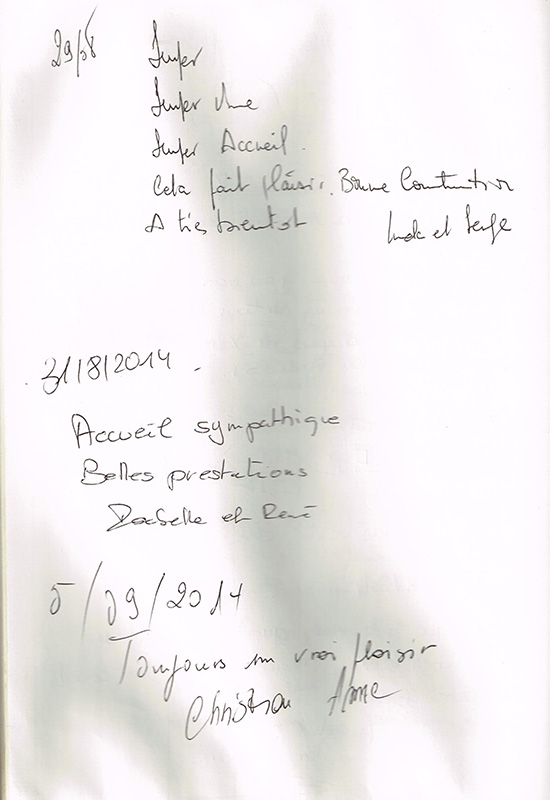 29/08 Super
Super Vue
Super Accueil.
Cela fait plaisir. Bonne Continuation
A très bientôt Linda et Serge
31/8/2014
Accueil sympathique
Belles prestations
Isabelle et René
5/09/2014
Toujours un vrai plaisir
Christian Anne